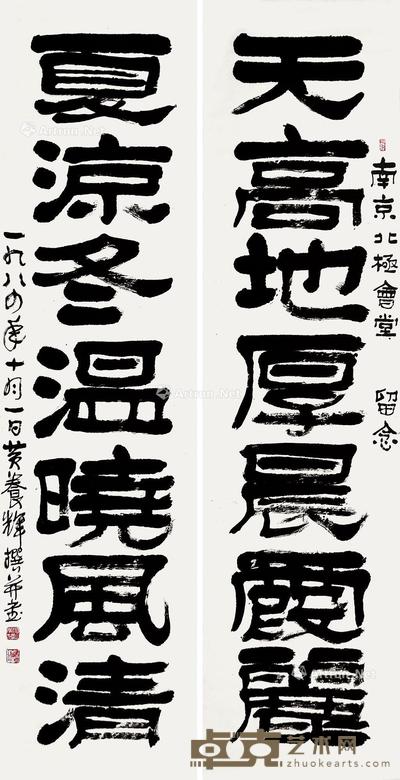 南京北極會堂 留念
天高地厚晨霞麗
夏涼冬温曉風清
一九八四年十月一日黄養輝撰并書
Artron.Net
卓克艺术网
zhuokearts.com